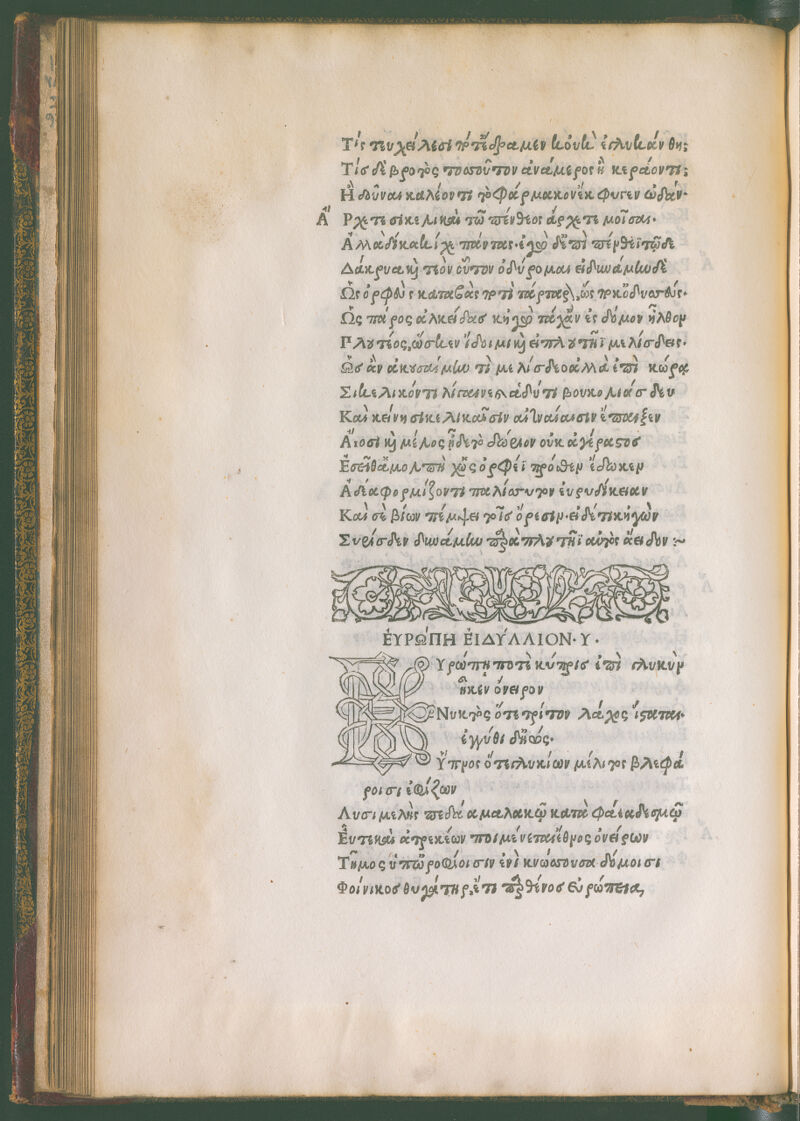 Τίς τευ χείλεσι ποτέδραμεν κ' οὐκ ἐγλυκάνθη;
Τίς δὲ βροτὸς τοσοῦτον ἀνάμερος ἢ κεράοντι;
Ἢ δοῦναι καλέοντι τὸ φάρμακον ἔκφυγεν ὠδάν·
Ἄ Ρχετε σικελικαὶ τῶ πένθεος ἄρχετε μοῖσαι·
Ἀλλὰ δίκα κίχε πάντας· ἐγὼ δ' ἐπὶ πένθεϊ τῷδε
Δάκρυα καὶ τεὸν οὗτον ὀδύρομαι εἰ δυνάμην δὲ
Ὡς ὀρφεὺς καταβὰς ποτὶ τάρταρον, ὥς ποκ' ὀδυσσεύς·
Ὡς πάρος ἀλκείδας κἠγὼ τάχ' ἂν ἐς δόμον ἦλθον
Πλουτέος, ὥς κεν ἴδοιμι καὶ εἰ πλουτῆϊ μελίσδεις·
Ὡς ἂν ἀκουσαίμην τὶ μελίσδεο ἀλλὰ ἐπὶ κώρᾳ
Σικελικόν τι λίγαινε καὶ ἁδύ τι βουκολιάσδευ
Καὶ κείνη σικελικαῖσιν αἰτναίαισιν ἔπαιξεν
Ἀιοσι καὶ μέλος ᾖδε τὸ δώριον οὐκ ἀγέραστος
Ἐσεῖθ' ἁ μολπὴ χ' ὡς ὀρφέϊ πρόσθεν ἔδωκεν
Ἁδέα φορμίζοντι παλίσσυτον εὐρυδίκειαν
Καὶ σὲ βίων πέμψει τοῖς ὄρεσιν· εἰ δέ τι κἠγὼν
Συρίσδεν δυνάμην παρὰ πλουτῆϊ αὐτὸς ἄειδον :~
ἘΥΡΩ͂ΠΗ ἘΙΔΎΛΛΙΟΝ· Υ·
Ε Υρώπῃ ποτὲ κύπρις ἐπὶ γλυκὺν
ἧκεν ὄνειρον
Νυκτὸς ὅτε τρίτον λάχος ἵσταται
ἐγγύθι δ' ἠώς·
Ὕπνος ὅτε γλυκίων μέλιτος βλεφά
ροισι ἐφίζων
Λυσιμελὴς πεδάα μαλακῷ κατὰ φάεα δεσμῷ
Εὖτε καὶ ἀτρεκέων ποιμένεται ἔθνος ὀνείρων
Τῆμος ὑπωροφίοισιν ἐνὶ κνώσσουσα δόμοισι
Φοίνικος θυγάτηρ, ἔτι παρθένος Εὐρώπεια,